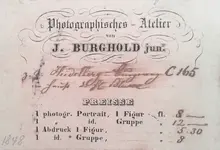 Photographisches - Atelier
von
J. BURGHOLD junr.
C 165
PREISSE
1 photogr. Portrait, 1 Figur fl. 8 —
1 " id. Gruppe " 12 —
1 Abdruck 1 Figur " 5.30
1 id. " Gruppe " 8
1848